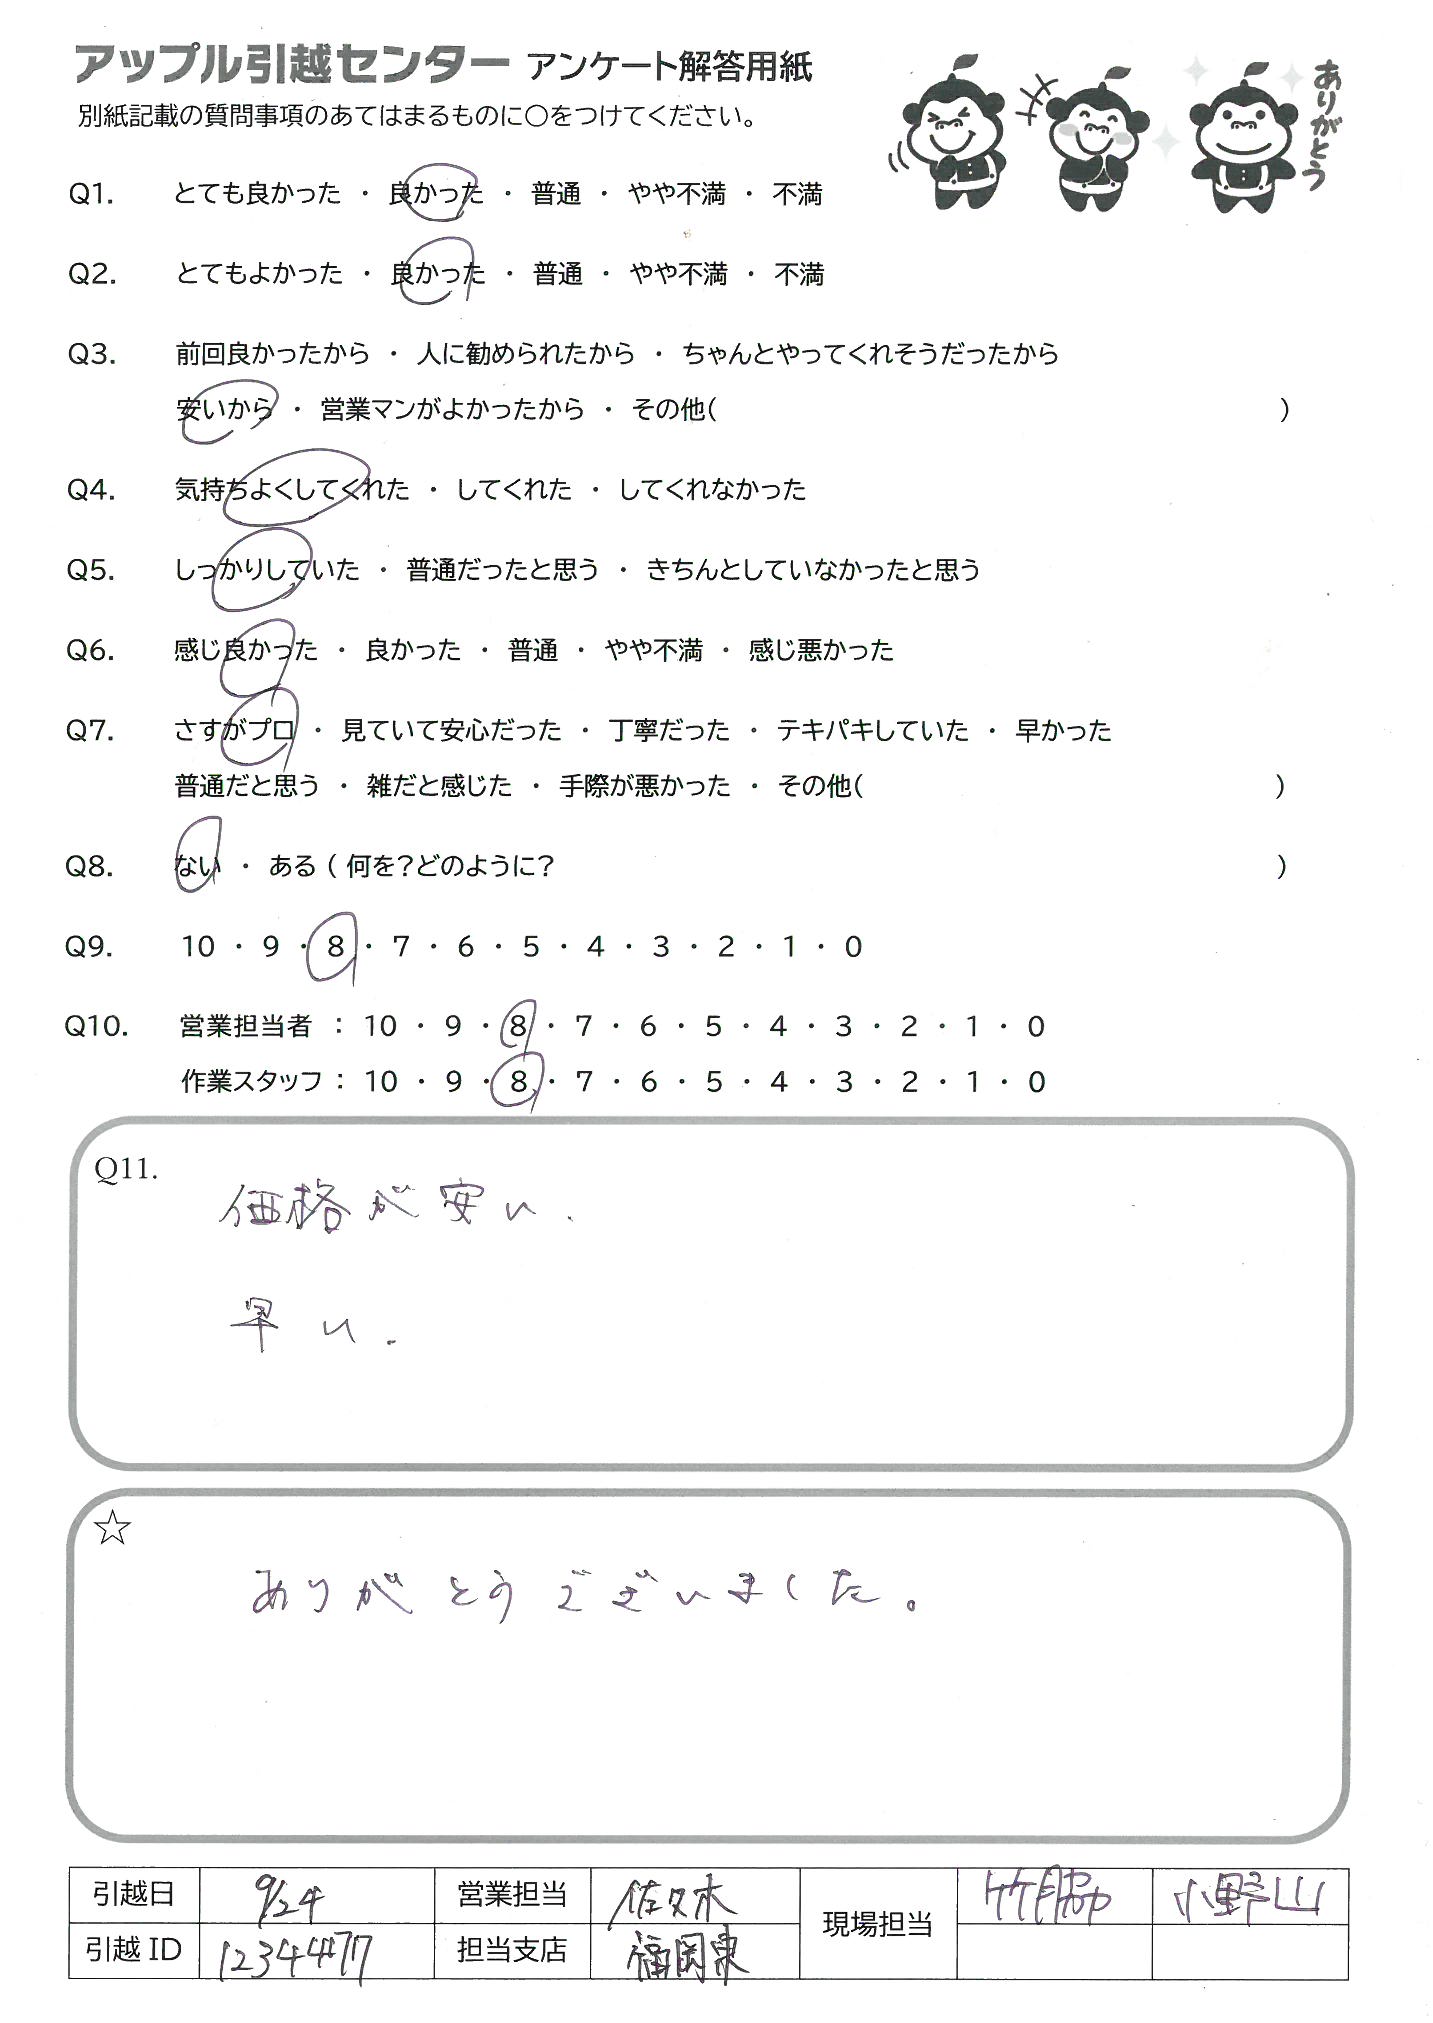 アップル引越センター アンケート解答用紙
ありがとう
別紙記載の質問事項のあてはまるものに○をつけてください。
Q1. とても良かった ・ 良かった ・ 普通 ・ やや不満 ・ 不満
Q2. とてもよかった ・ 良かった ・ 普通 ・ やや不満 ・ 不満
Q3. 前回良かったから ・ 人に勧められたから ・ ちゃんとやってくれそうだったから
安いから ・ 営業マンがよかったから ・ その他( )
Q4. 気持ちよくしてくれた ・ してくれた ・ してくれなかった
Q5. しっかりしていた ・ 普通だったと思う ・ きちんとしていなかったと思う
Q6. 感じ良かった ・ 良かった ・ 普通 ・ やや不満 ・ 感じ悪かった
Q7. さすがプロ ・ 見ていて安心だった ・ 丁寧だった ・ テキパキしていた ・ 早かった
普通だと思う ・ 雑だと感じた ・ 手際が悪かった ・ その他( )
Q8. ない ・ ある ( 何を?どのように? )
Q9. 10 ・ 9 ・ 8 ・ 7 ・ 6 ・ 5 ・ 4 ・ 3 ・ 2 ・ 1 ・ 0
Q10. 営業担当者 : 10 ・ 9 ・ 8 ・ 7 ・ 6 ・ 5 ・ 4 ・ 3 ・ 2 ・ 1 ・ 0
作業スタッフ : 10 ・ 9 ・ 8 ・ 7 ・ 6 ・ 5 ・ 4 ・ 3 ・ 2 ・ 1 ・ 0
Q11.
価格が安い.
早い.
☆
ありがとうございました。
引越日 9/24 営業担当 佐々木 現場担当 竹脇 小野山
引越 ID 12344477 担当支店 福岡東